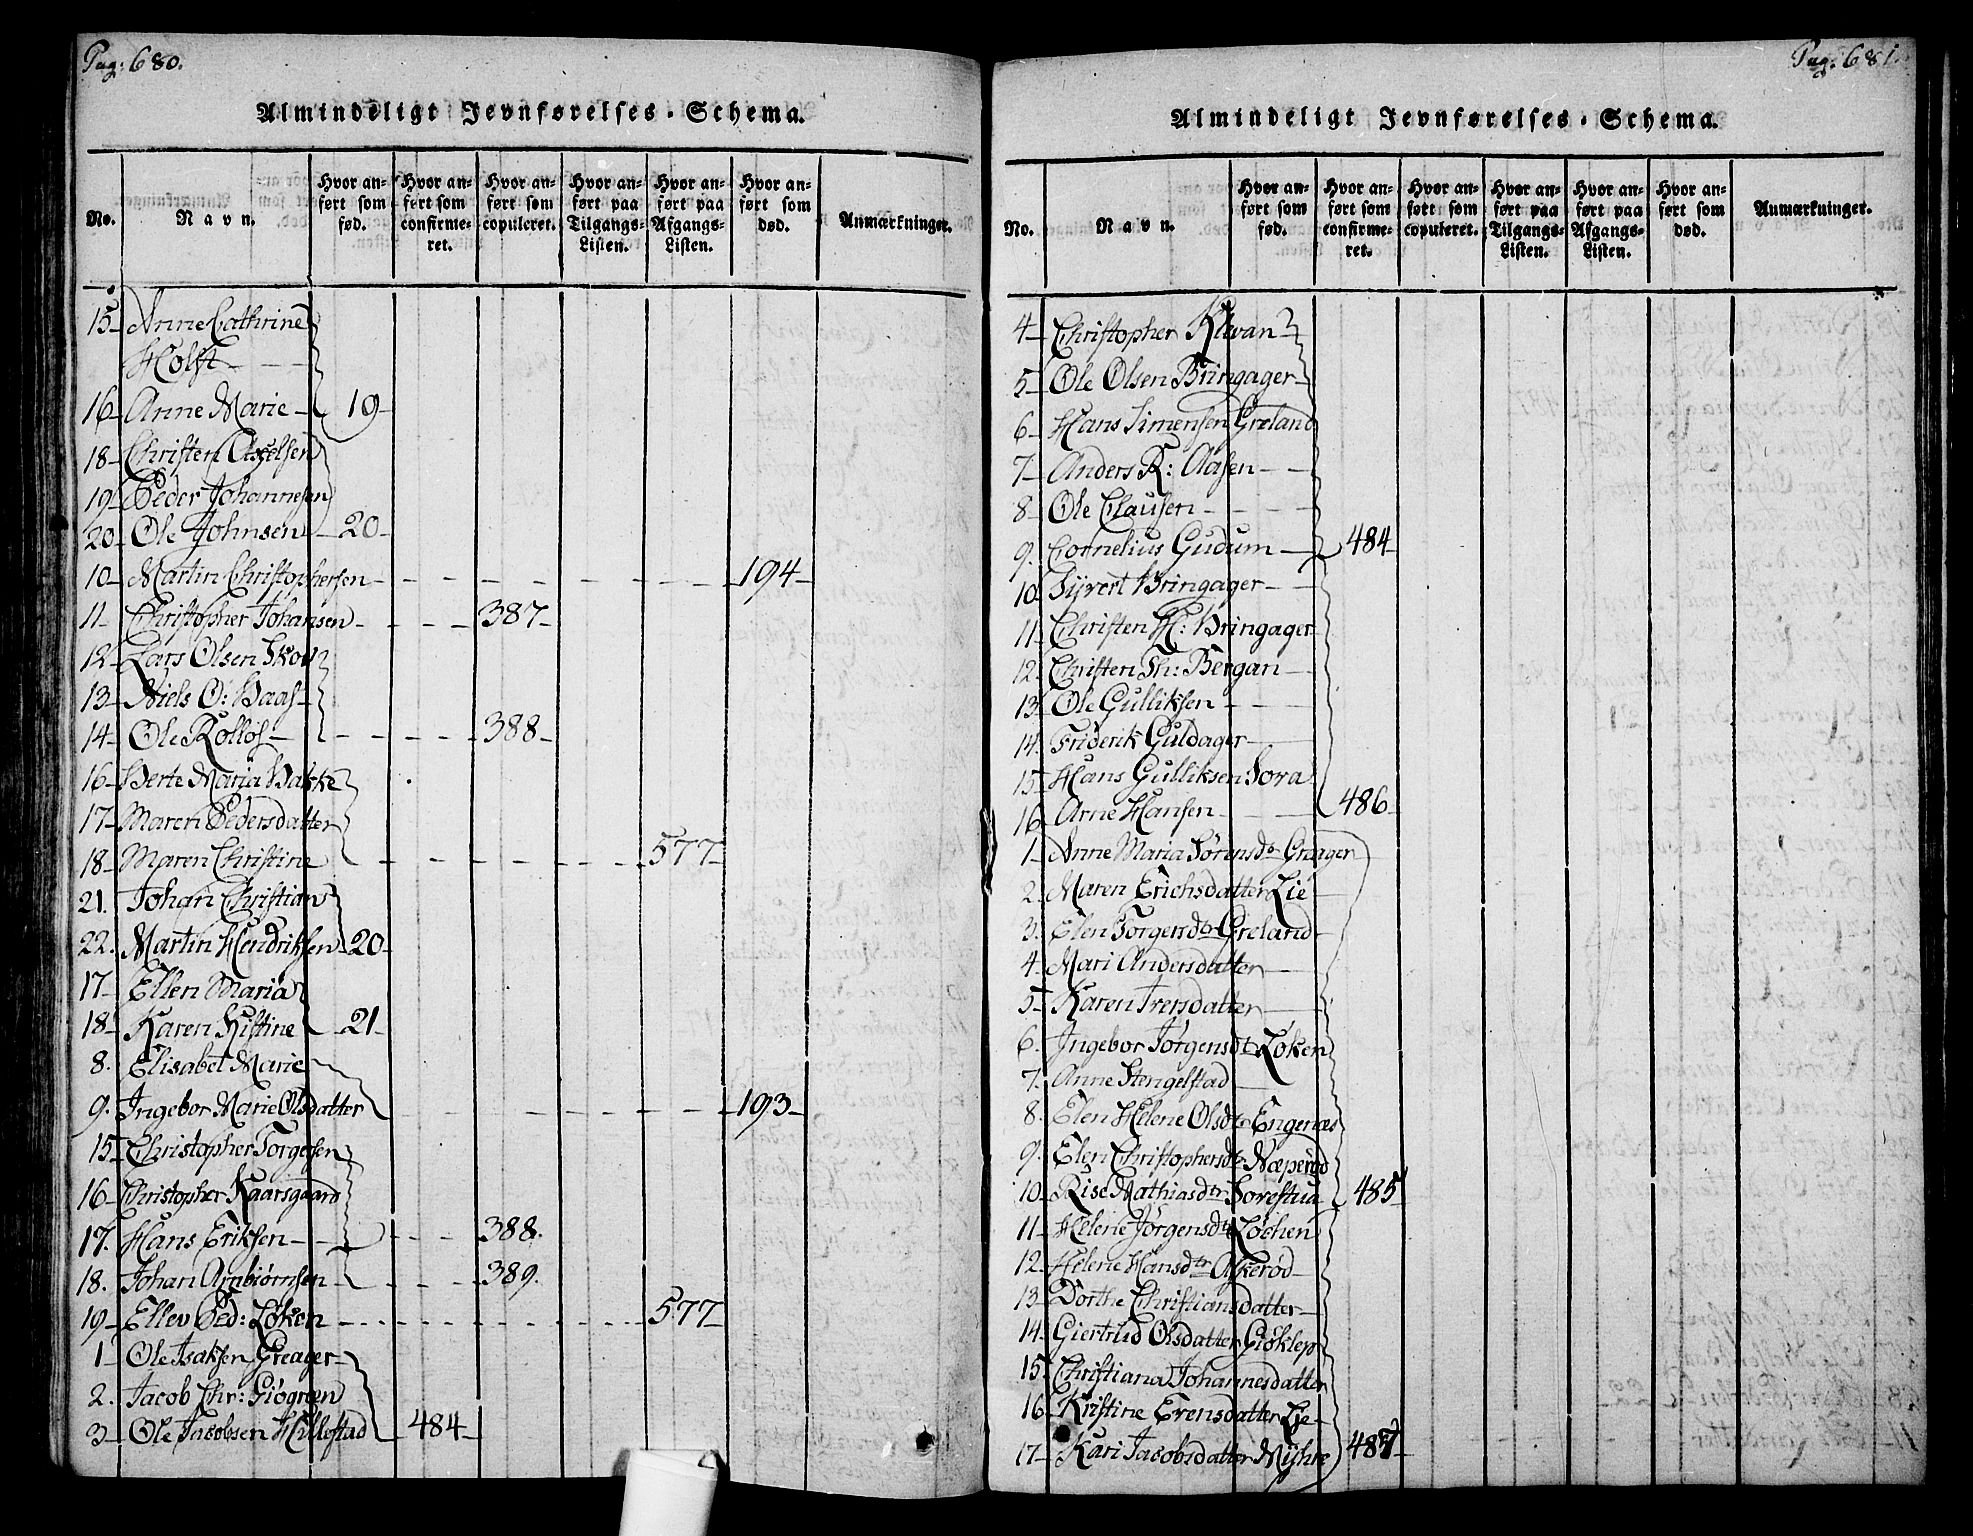 Pag: 680.
Almindeligt Jevnførelses-Schema.
No. Navn. Hvor anført som fød. Hvor anført som confirmeret. Hvor anført som copuleret. Hvor anført paa Tilgangs-Listen. Hvor anført paa Afgangs-Listen. Hvor anført som død. Anmærkninger.
15 Anne Cathrine
Holst
16 Anne Marie 19
18 Christen Axelsen
19 Peder Johannesen
20 Ole Johnsen 20
10 Martin Christophersen 194
11 Christopher Johansen 387
12 Lars Olsen Skov
13 Niels O: Haas
14 Ole Rolløs 388
16 Berte Maria Bakke
17 Maren Pedersdatter
18 Maren Christine 577
21. Johan Christian
22. Martin Hendriksen 20
17 Ellen Maria
18 Karen Kistine 21
8. Elisabet Marie
9. Ingebor Marie Olsdatter 193
15 Christopher Torgesen
16 Christopher Kaarsgaard
17. Hans Eriksen 388.
18. Johan Arnbiørnsen 389.
19 Ellev Ped: Løken 577
1 Ole Isaksen Greager
2. Jacob Chr: Giøgreen
3 Ole Jacobsen Hillestad 484
Pag. 681.
Almindeligt Jevnførelses-Schema.
No. Navn. Hvor anført som fød. Hvor anført som confirmeret. Hvor anført som copuleret. Hvor anført paa Tilgangs-Listen. Hvor anført paa Afgangs-Listen. Hvor anført som død. Anmærkninger.
4 Christopher Klavan
5 Ole Olsen Bringager
6 Hans Simensen Greland
7 Anders R: Aasen
8 Ole Clausen
9. Cornelius Gudum 484
10. Syvert Bringager
11 Christen H: Bringager
12. Christen Th: Bergan
13 Ole Gulliksen
14. Friderik Guldager
15 Hans Gulliksen Sora
16 Arne Hansen 486
1 Anne Maria Sørensdtr Greager
2. Maren Erichsdatter Lie
3. Elen Torgersdtr Greland
4 Mari Andersdatter
5 Karen Iversdatter
6. Ingebor Jørgensdtr Løken
7. Anne Stengelstad
8. Elen Helene Olsdtr Engenæs
9. Elen Christophersdtr Næperød
10. Rise Mathiasdtr Sorestua 485
11 Helene Jørgensdtr Løchen
12. Helene Hansdtr Askerød
13 Dorthe Christiansdatter
14. Giertrud Olsdatter Giøklep
15. Christiana Johannesdatter
16 Kristine Evensdatter Lie
17 Kari Jacobsdatter Myhre 487